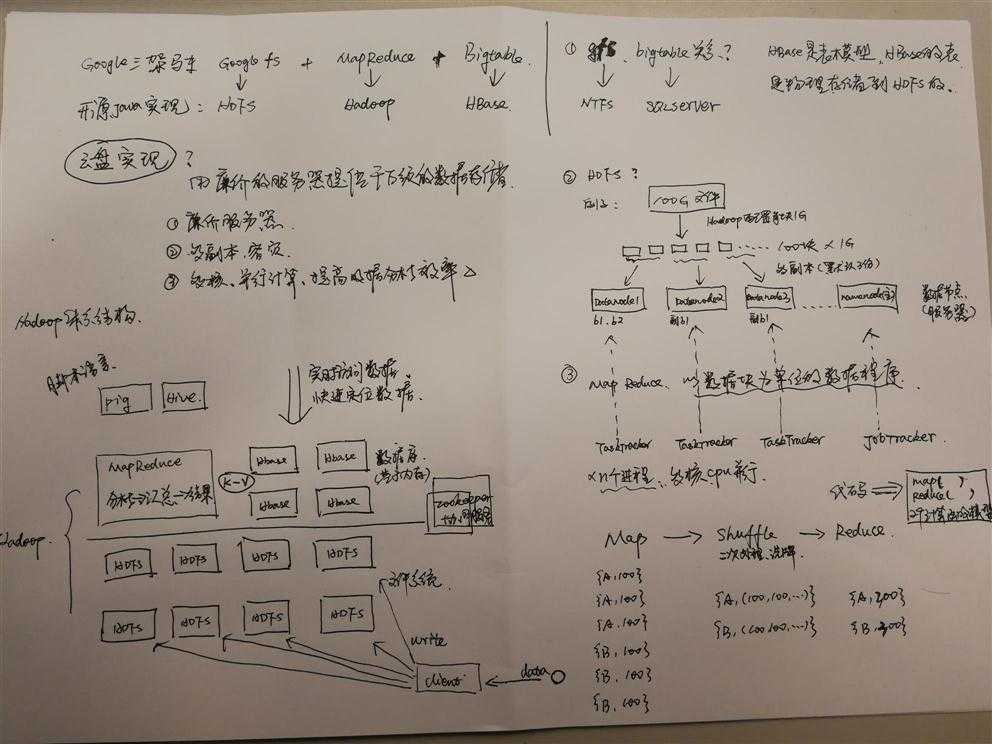 Google三架马车 Google fs + MapReduce + Bigtable.
开源Java实现: HDFS Hadoop HBase.
云盘实现 ?
用廉价的服务器提供千万级的数据存储.
① 廉价服务器.
② 多副本.容灾.
③ 多核、并行计算、提高数据分析效率
Hadoop体系结构.
脚本语言.
pig Hive.
实时访问数据.
快速定位数据.
MapReduce
分析→汇总→结果
K-V
Hbase Hbase
Hbase Hbase
数据库
zookeeper
Hadoop.
HDFS HDFS HDFS HDFS
文件系统.
HDFS HDFS HDFS HDFS
write
client
data
① gfs. bigtable关系?
NTFS SQLserver
HBase是表模型,HBase的表
是物理存储到HDFS的.
② HDFS ?
例子:
100G 文件
Hadoop配置每块1G
...... 100块 ×1G
多副本(默认3份)
Datanode1 Datanode2 Datanode3 ...... namenode(主)
b1.b2 副b1 副b1
数据节点.
(服务器)
③ Map Reduce. 以数据块为单位的数据程序.
TaskTracker TaskTracker TaskTracker JobTracker.
×n个进程. 多核cpu并行
代码 ⇒
map( );
reduce( );
Map → Shuffle → Reduce.
二次处理、洗牌
{A,100}
{A,100} {A,(100,100,...)} {A,300}
{A,100} {B,(100,100,...)} {B,300}
{B,100}
{B,100}
{B,100}